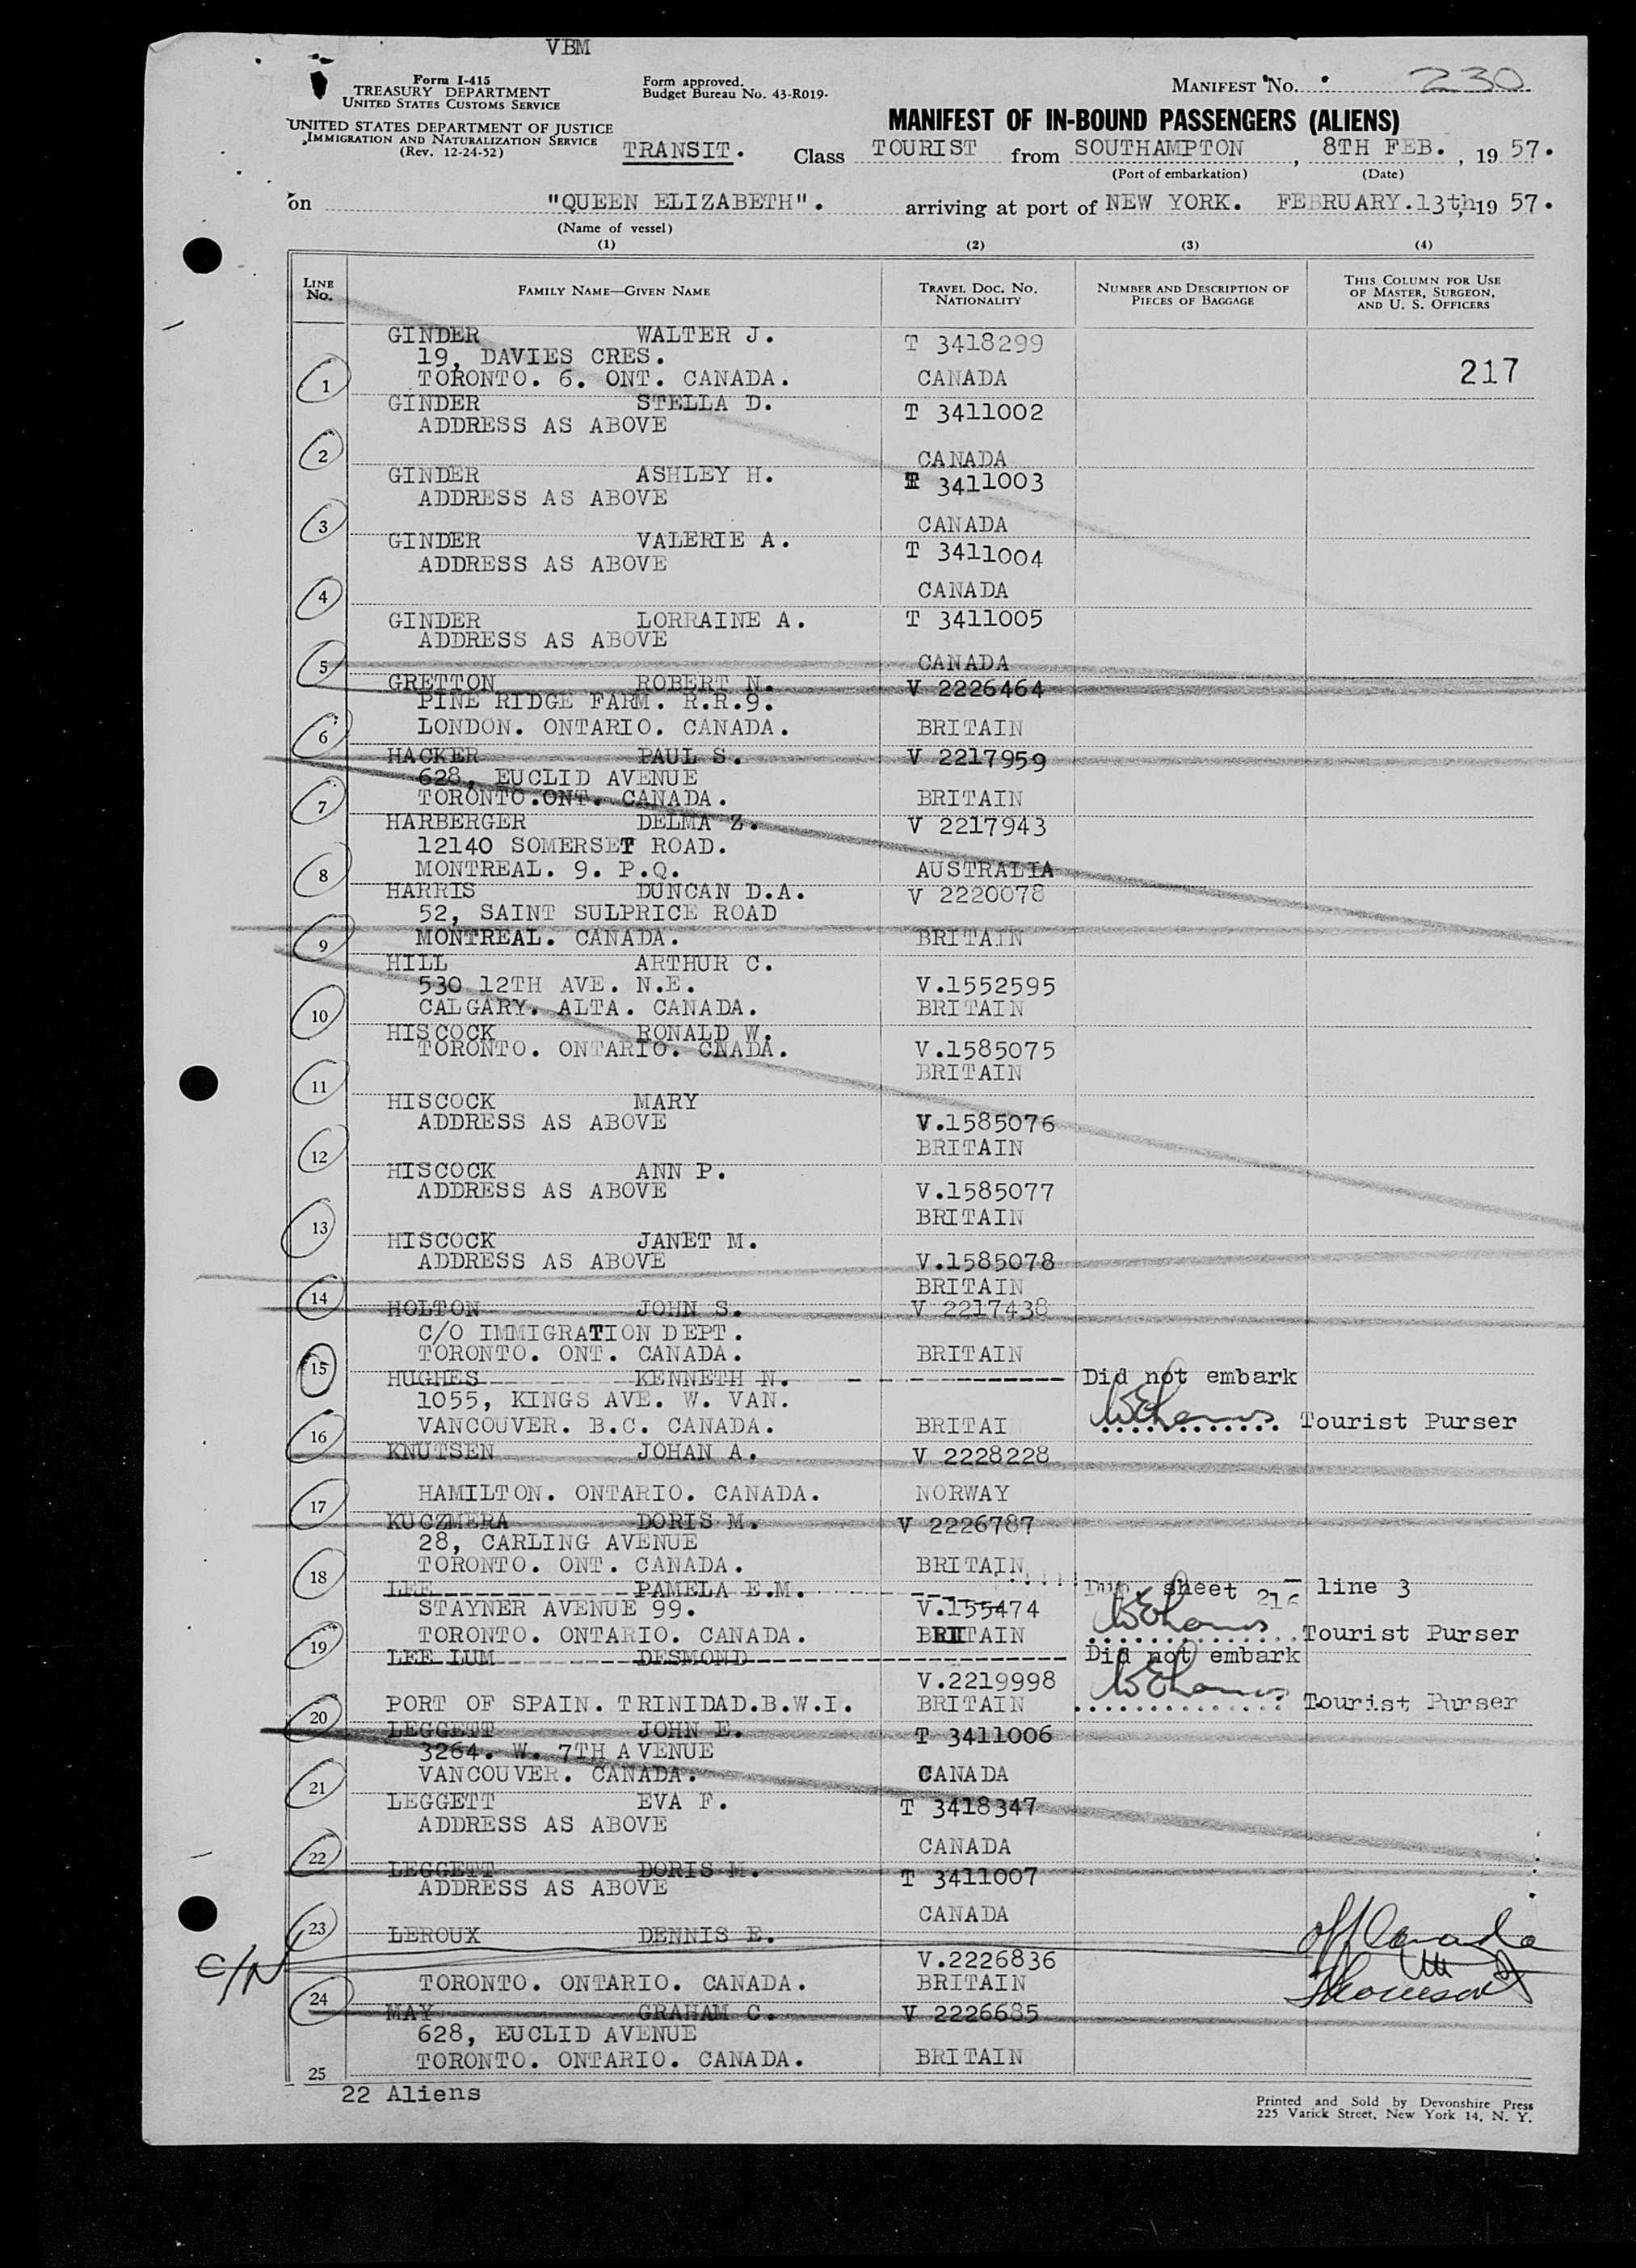 VBM
Form I-415
TREASURY DEPARTMENT
UNITED STATES CUSTOMS SERVICE
Form approved.
Budget Bureau No. 43-R019-
MANIFEST No. 230
UNITED STATES DEPARTMENT OF JUSTICE
IMMIGRATION AND NATURALIZATION SERVICE
(Rev. 12-24-52)
MANIFEST OF IN-BOUND PASSENGERS (ALIENS)
TRANSIT. Class TOURIST from SOUTHAMPTON, 8TH FEB., 19 57.
(Port of embarkation) (Date)
on "QUEEN ELIZABETH". arriving at port of NEW YORK. FEBRUARY.13th,19 57.
(Name of vessel)
(1) (2) (3) (4)
LINE No. FAMILY NAME—GIVEN NAME TRAVEL DOC. NO. NATIONALITY NUMBER AND DESCRIPTION OF PIECES OF BAGGAGE THIS COLUMN FOR USE OF MASTER, SURGEON, AND U. S. OFFICERS
GINDER WALTER J. T 3418299
19, DAVIES CRES.
1 TORONTO. 6. ONT. CANADA. CANADA 217
GINDER STELLA D. T 3411002
ADDRESS AS ABOVE
2 CANADA
GINDER ASHLEY H. T 3411003
ADDRESS AS ABOVE
3 CANADA
GINDER VALERIE A. T 3411004
ADDRESS AS ABOVE
4 CANADA
GINDER LORRAINE A. T 3411005
ADDRESS AS ABOVE
5 CANADA
GRETTON ROBERT N. V 2226464
PINE RIDGE FARM. R.R.9.
6 LONDON. ONTARIO. CANADA. BRITAIN
HACKER PAUL S. V 2217959
628, EUCLID AVENUE
7 TORONTO.ONT. CANADA. BRITAIN
HARBERGER DELMA Z. V 2217943
12140 SOMERSET ROAD.
8 MONTREAL. 9. P.Q. AUSTRALIA
HARRIS DUNCAN D.A. V 2220078
52, SAINT SULPRICE ROAD
9 MONTREAL. CANADA. BRITAIN
HILL ARTHUR C.
530 12TH AVE. N.E. V.1552595
10 CALGARY. ALTA. CANADA. BRITAIN
HISCOCK RONALD W.
TORONTO. ONTARIO. CNADA. V.1585075
11 BRITAIN
HISCOCK MARY
ADDRESS AS ABOVE V.1585076
12 BRITAIN
HISCOCK ANN P.
ADDRESS AS ABOVE V.1585077
13 BRITAIN
HISCOCK JANET M.
ADDRESS AS ABOVE V.1585078
14 BRITAIN
HOLTON JOHN S. V 2217438
C/O IMMIGRATION DEPT.
15 TORONTO. ONT. CANADA. BRITAIN
HUGHES KENNETH N. Did not embark
1055, KINGS AVE. W. VAN.
16 VANCOUVER. B.C. CANADA. BRITAI Tourist Purser
KNUTSEN JOHAN A. V 2228228
17 HAMILTON. ONTARIO. CANADA. NORWAY
KUCZMERA DORIS M. V 2226787
28, CARLING AVENUE
18 TORONTO. ONT. CANADA. BRITAIN
LEE PAMELA E.M. sheet 216 line 3
STAYNER AVENUE 99. V.155474
19 TORONTO. ONTARIO. CANADA. BRITAIN Tourist Purser
LEE LUM DESMOND Did not embark
V.2219998
20 PORT OF SPAIN. TRINIDAD.B.W.I. BRITAIN Tourist Purser
LEGGETT JOHN E. T 3411006
3264. W. 7TH AVENUE
21 VANCOUVER. CANADA. CANADA
LEGGETT EVA F. T 3418347
ADDRESS AS ABOVE
22 CANADA
LEGGETT DORIS M. T 3411007
ADDRESS AS ABOVE
23 CANADA
LEROUX DENNIS E. off Canada
C/N V.2226836
24 TORONTO. ONTARIO. CANADA. BRITAIN
MAY GRAHAM C. V 2226685
628, EUCLID AVENUE
25 TORONTO. ONTARIO. CANADA. BRITAIN
22 Aliens
Printed and Sold by Devonshire Press
225 Varick Street, New York 14, N. Y.